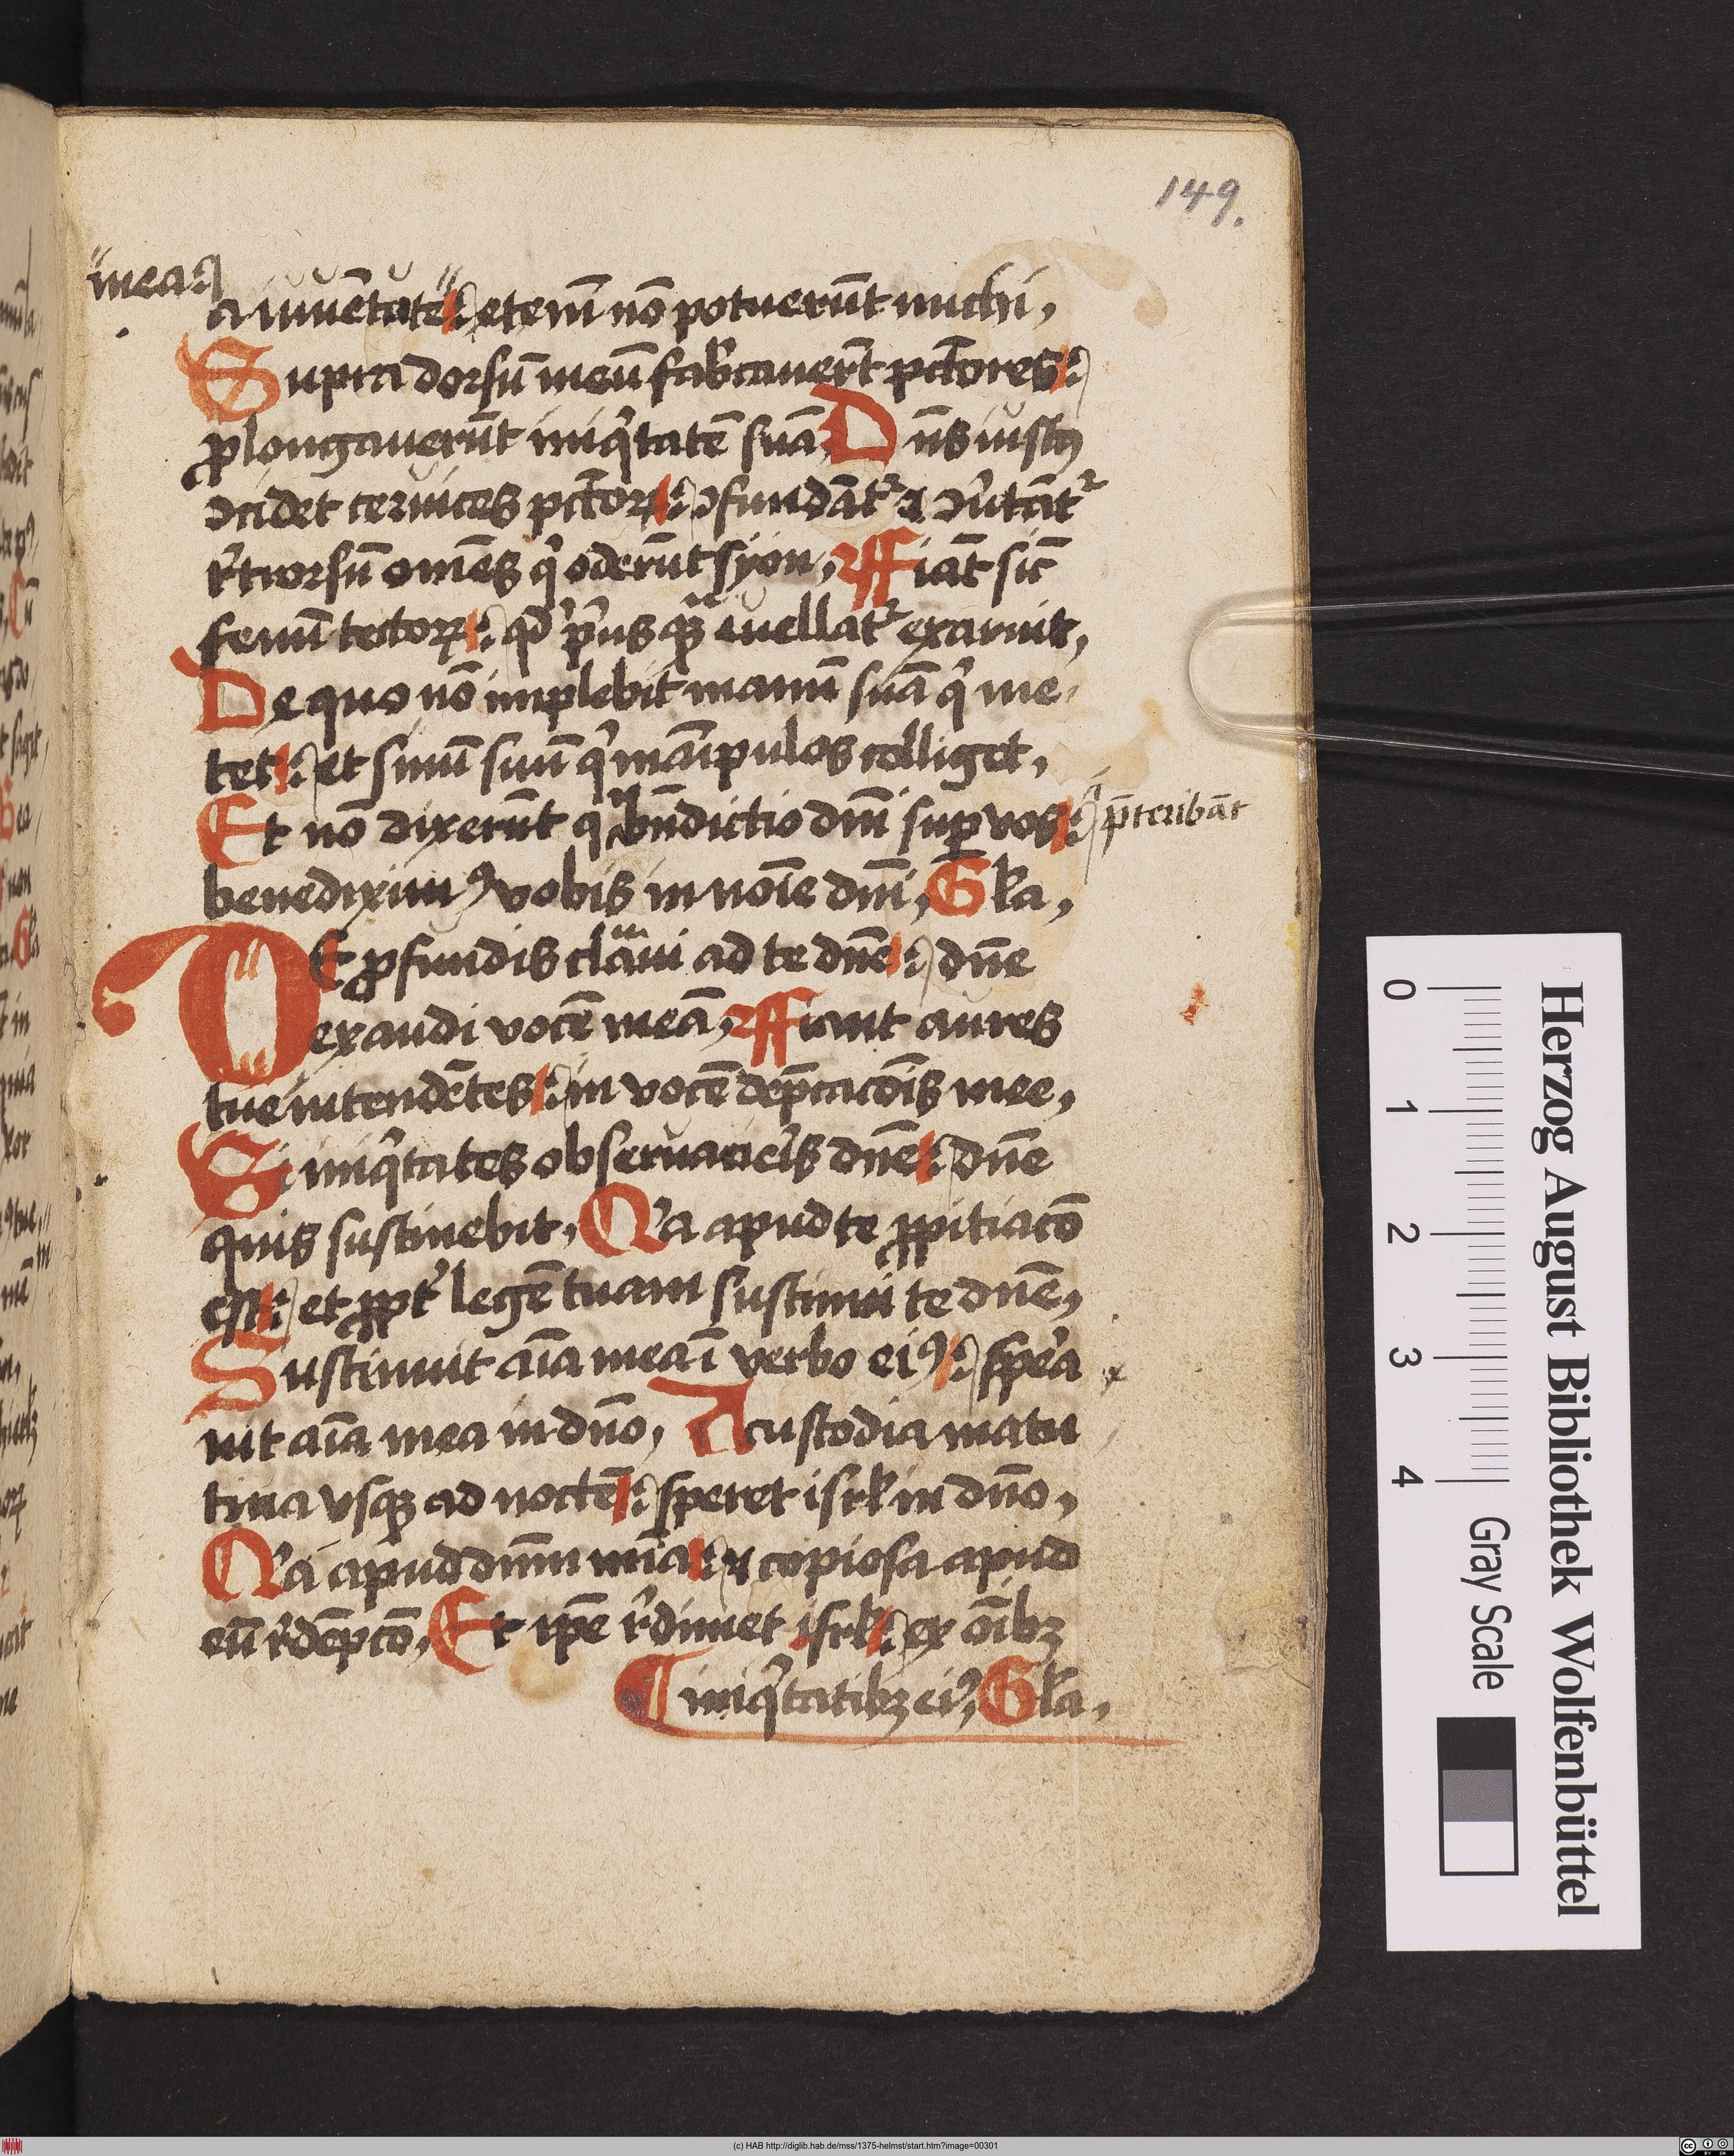 149.
mea
a iuuētute etenī nō potuerūt michi,
Supra dorsū meū fabͥcauerūt pctores
ꝓlongauerūt iniqͥtatē suā Dn̄s iustꝰ
ↄcidet ceruices pctoꝝ ↄfundāt᷑ ⁊ ↄu̓tāt᷑
rͤtrorsū om̄es qͥ oderūt syon, ffiāt sic̄
fenū tectoꝝ qd̓ pͥus qꝫ euellat᷑ exaruit,
De quo nō implebit manū suā qͥ me
tet et sinū suū qͥ manipulos colliget,
Et nō dixerūt q bn̄dictio dn̄i suꝑ vos p̄teribāt
benediximꝰ vobis in noīe dn̄i, Gła,
DE ꝓfundis clamaui ad te dn̄e dn̄e
exaudi vocē meā, ffiant aures
tue intendētes in vocē dep̄cacōis mee,
Si iniqͥtates obseruaueīs dn̄e dn̄e
quis sustinebit, Qͥa apud te ꝓpitiacō
est et ꝓpt̓ legē tuam sustinui te dn̄e,
Sustinuit aīa mea ī verbo eiꝰ spera
uit aīa mea in dn̄o, A custodia matu
tina vsqꝫ ad noctē speret isrł in dn̄o,
Qͥa apud dn̄m mīa ⁊ copiosa apud
eū rͤdēpcō, Et ip̄e rͤdimet isrł ex oībꝫ
iniqͥtatibꝫ eiꝰ, Gła,
Herzog August Bibliothek Wolfenbüttel
0 1 2 3 4 Gray Scale
(c) HAB http://diglib.hab.de/mss/1375-helmst/start.htm?image=00301